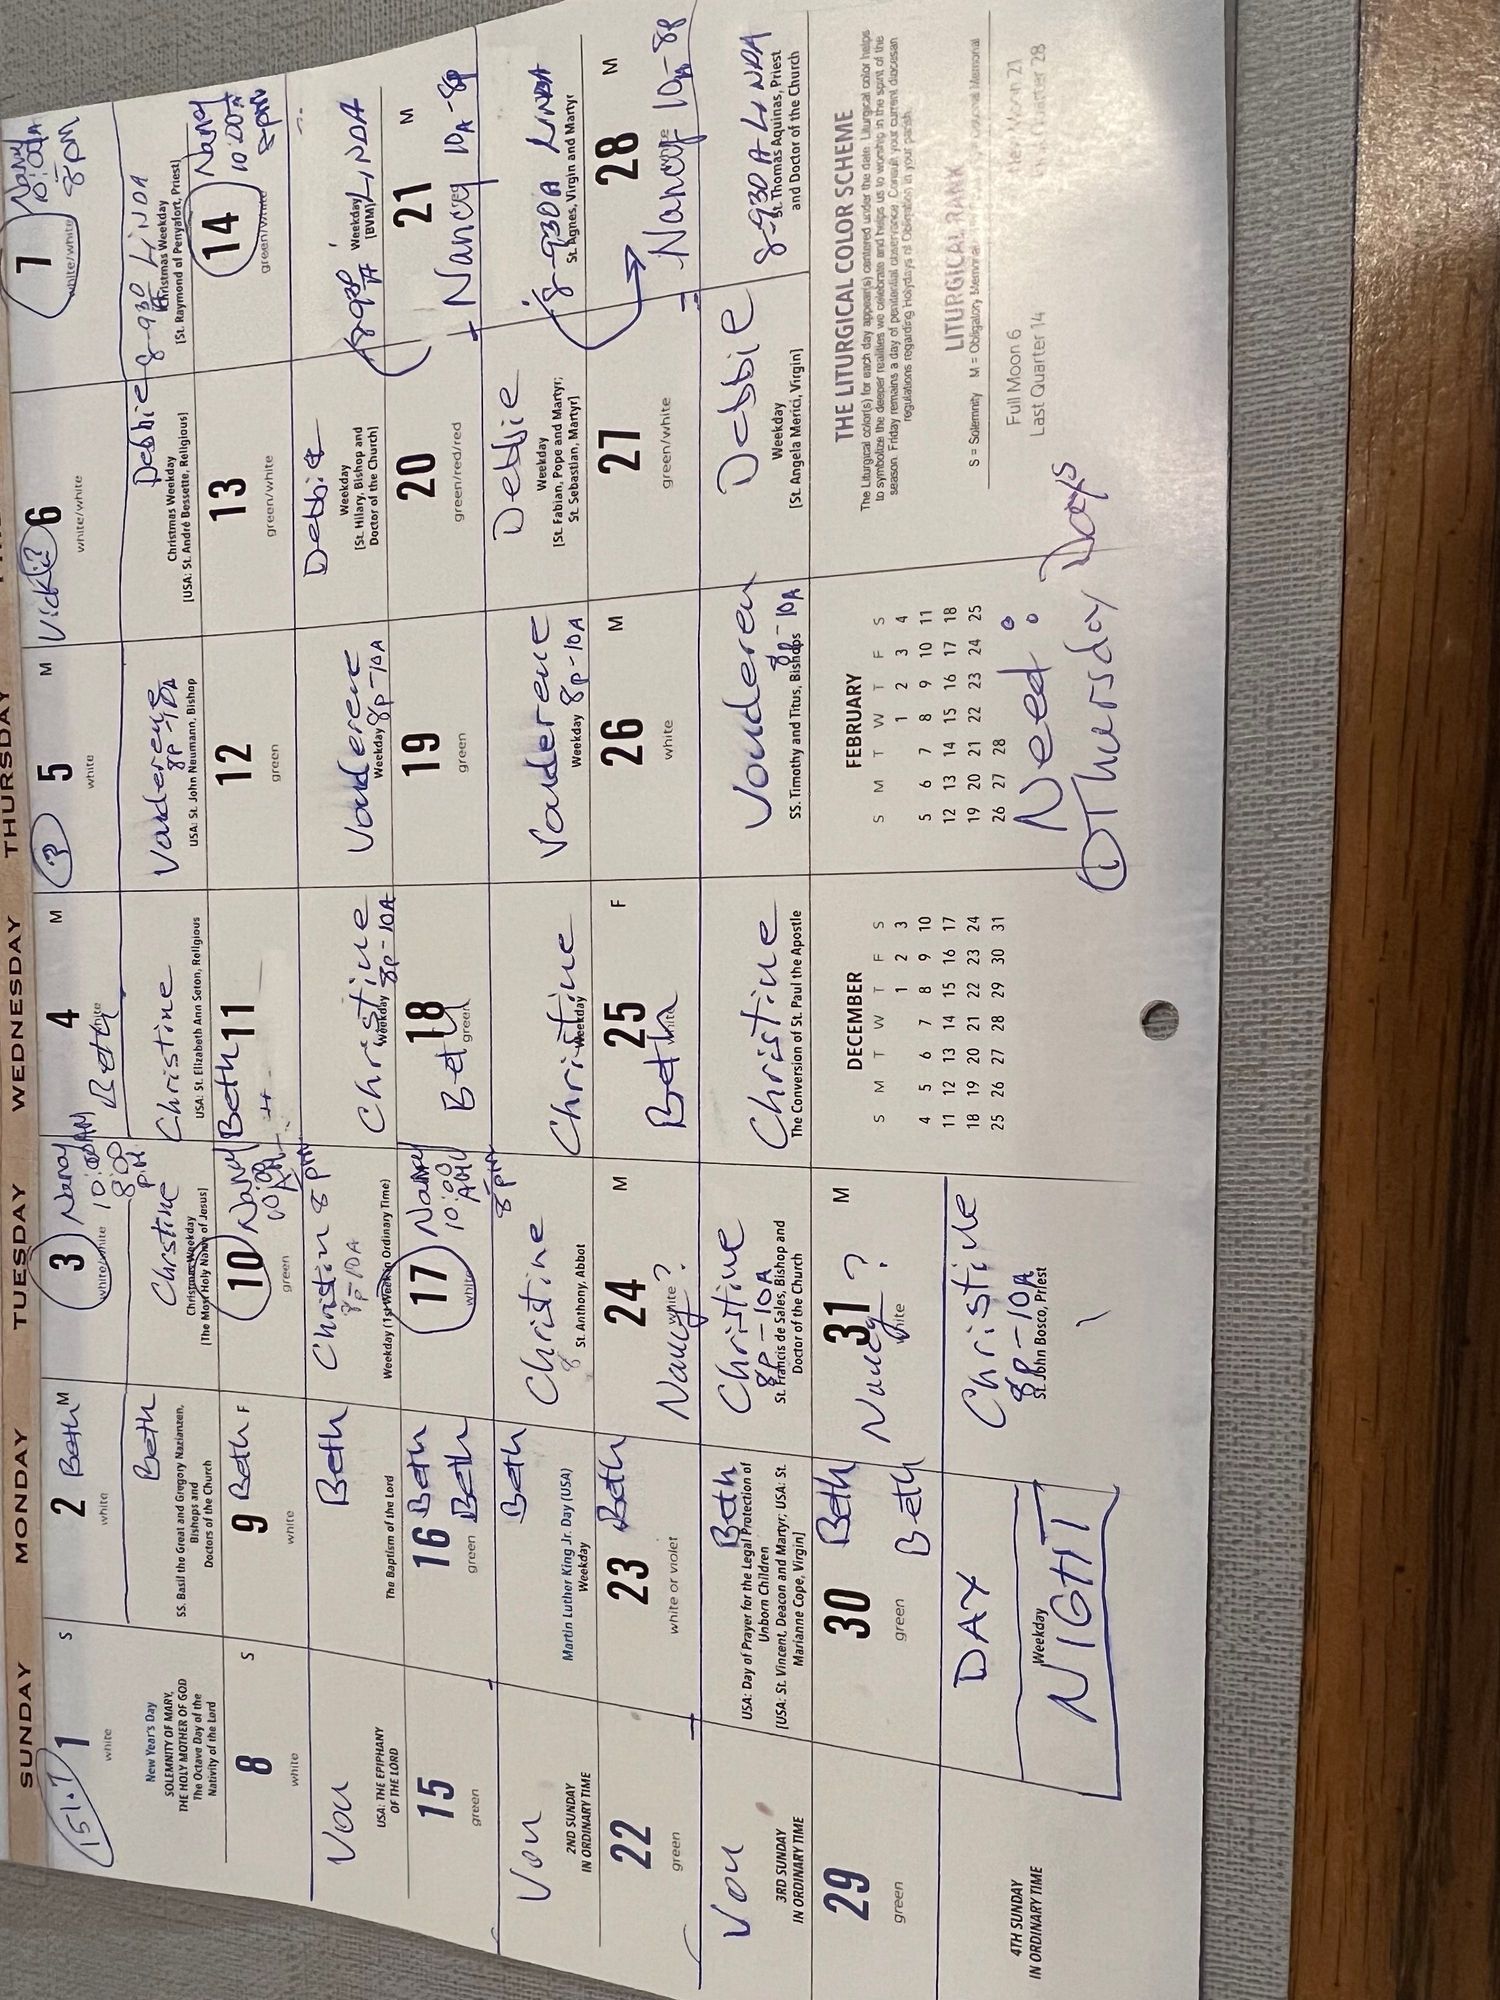 SUNDAY MONDAY TUESDAY WEDNESDAY THURSDAY
151.7 1 S
white
New Year's Day
SOLEMNITY OF MARY,
THE HOLY MOTHER OF GOD
The Octave Day of the
Nativity of the Lord
2 Beth M
white
Beth
SS. Basil the Great and Gregory Nazianzen,
Bishops and
Doctors of the Church
3 Nancy
white/white 10:00AM
8:00
PM
Christine
Christmas Weekday
[The Most Holy Name of Jesus]
4 M
Beth white
Christine
USA: St. Elizabeth Ann Seton, Religious
? 5 M
white
Vonderene
8p-10A
USA: St. John Neumann, Bishop
Vicki? 6
white/white
Debbie
Christmas Weekday
[USA: St. André Bessette, Religious]
7 Nancy
white/white 10:00A
8pm
8-930 LINDA
A
Christmas Weekday
[St. Raymond of Penyafort, Priest]
8 S
white
Von
USA: THE EPIPHANY
OF THE LORD
9 Beth F
white
Beth
The Baptism of the Lord
10 Nancy
green 10:00
AM
8pm
Christin
8p-10A
Weekday (1st Week in Ordinary Time)
Beth 11
Christine
Weekday 8p-10A
12
green
Vonderene
Weekday 8p-10A
13
green/white
Debbie
Weekday
[St. Hilary, Bishop and
Doctor of the Church]
14 Nancy
green/white 10:00A
8pm
8-930 LINDA
A
Weekday
[BVM]
15
green
Von
2ND SUNDAY
IN ORDINARY TIME
16 Beth
green Beth
Beth
Martin Luther King Jr. Day (USA)
Weekday
17 Nancy
white 10:00
AM
8pm
Christine
8
St. Anthony, Abbot
18
Beth green
Christine
Weekday
19
green
Vonderene
Weekday 8p-10A
20
green/red/red
Debbie
Weekday
[St. Fabian, Pope and Martyr;
St. Sebastian, Martyr]
21 M
Nancy 10A-8p
8-930A LINDA
St. Agnes, Virgin and Martyr
22
green
Von
3RD SUNDAY
IN ORDINARY TIME
23 Beth
white or violet
Beth
USA: Day of Prayer for the Legal Protection of
Unborn Children
[USA: St. Vincent, Deacon and Martyr; USA: St.
Marianne Cope, Virgin]
24 M
Nancy? white
Christine
8p-10A
St. Francis de Sales, Bishop and
Doctor of the Church
25 F
Beth white
Christine
The Conversion of St. Paul the Apostle
26 M
white
Vonderen
SS. Timothy and Titus, Bishops 8p-10A
27
green/white
Debbie
Weekday
[St. Angela Merici, Virgin]
28 M
Nancy 10A-8p
white
8-930A LINDA
St. Thomas Aquinas, Priest
and Doctor of the Church
29
green
4TH SUNDAY
IN ORDINARY TIME
30 Beth
green Beth
DAY
Weekday
NIGHT
31 M
Nancy? white
Christine
8p-10A
St. John Bosco, Priest
DECEMBER
S M T W T F S
1 2 3
4 5 6 7 8 9 10
11 12 13 14 15 16 17
18 19 20 21 22 23 24
25 26 27 28 29 30 31
FEBRUARY
S M T W T F S
1 2 3 4
5 6 7 8 9 10 11
12 13 14 15 16 17 18
19 20 21 22 23 24 25
26 27 28
Need:
① Thursday Days
THE LITURGICAL COLOR SCHEME
The Liturgical color(s) for each day appear(s) centered under the date. Liturgical color helps
to symbolize the deeper realities we celebrate and helps us to worship in the spirit of the
season. Friday remains a day of penitential observance. Consult your current diocesan
regulations regarding Holydays of Obligation in your parish.
LITURGICAL RANK
S = Solemnity M = Obligatory Memorial Memorial
Full Moon 6 New Moon 21
Last Quarter 14 Quarter 28